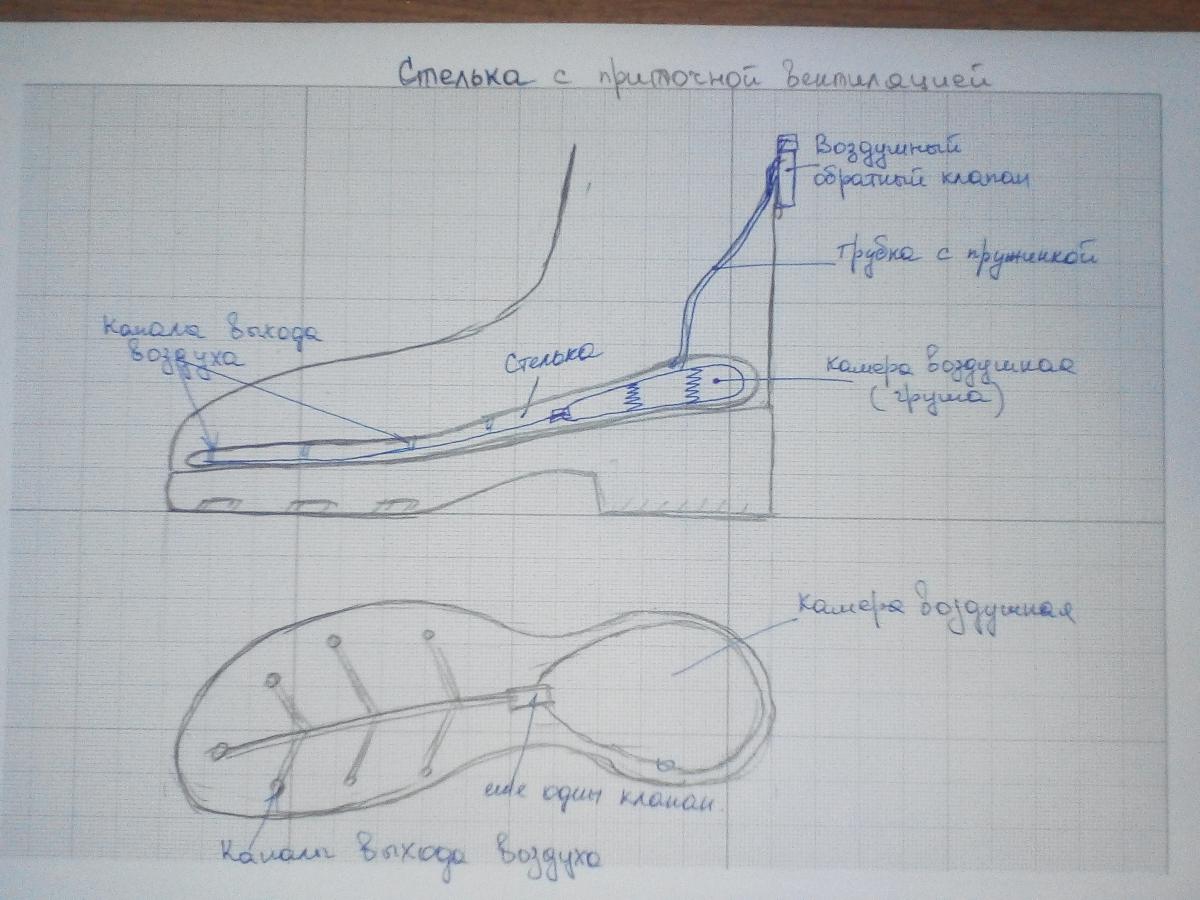 Стелька с приточной вентиляцией
Воздушный
обратный клапан
Трубка с пружинкой
Канала выхода
воздуха
Стелька
камера воздушная
(груша)
камера воздушная
еще один клапан.
Каналы выхода воздуха